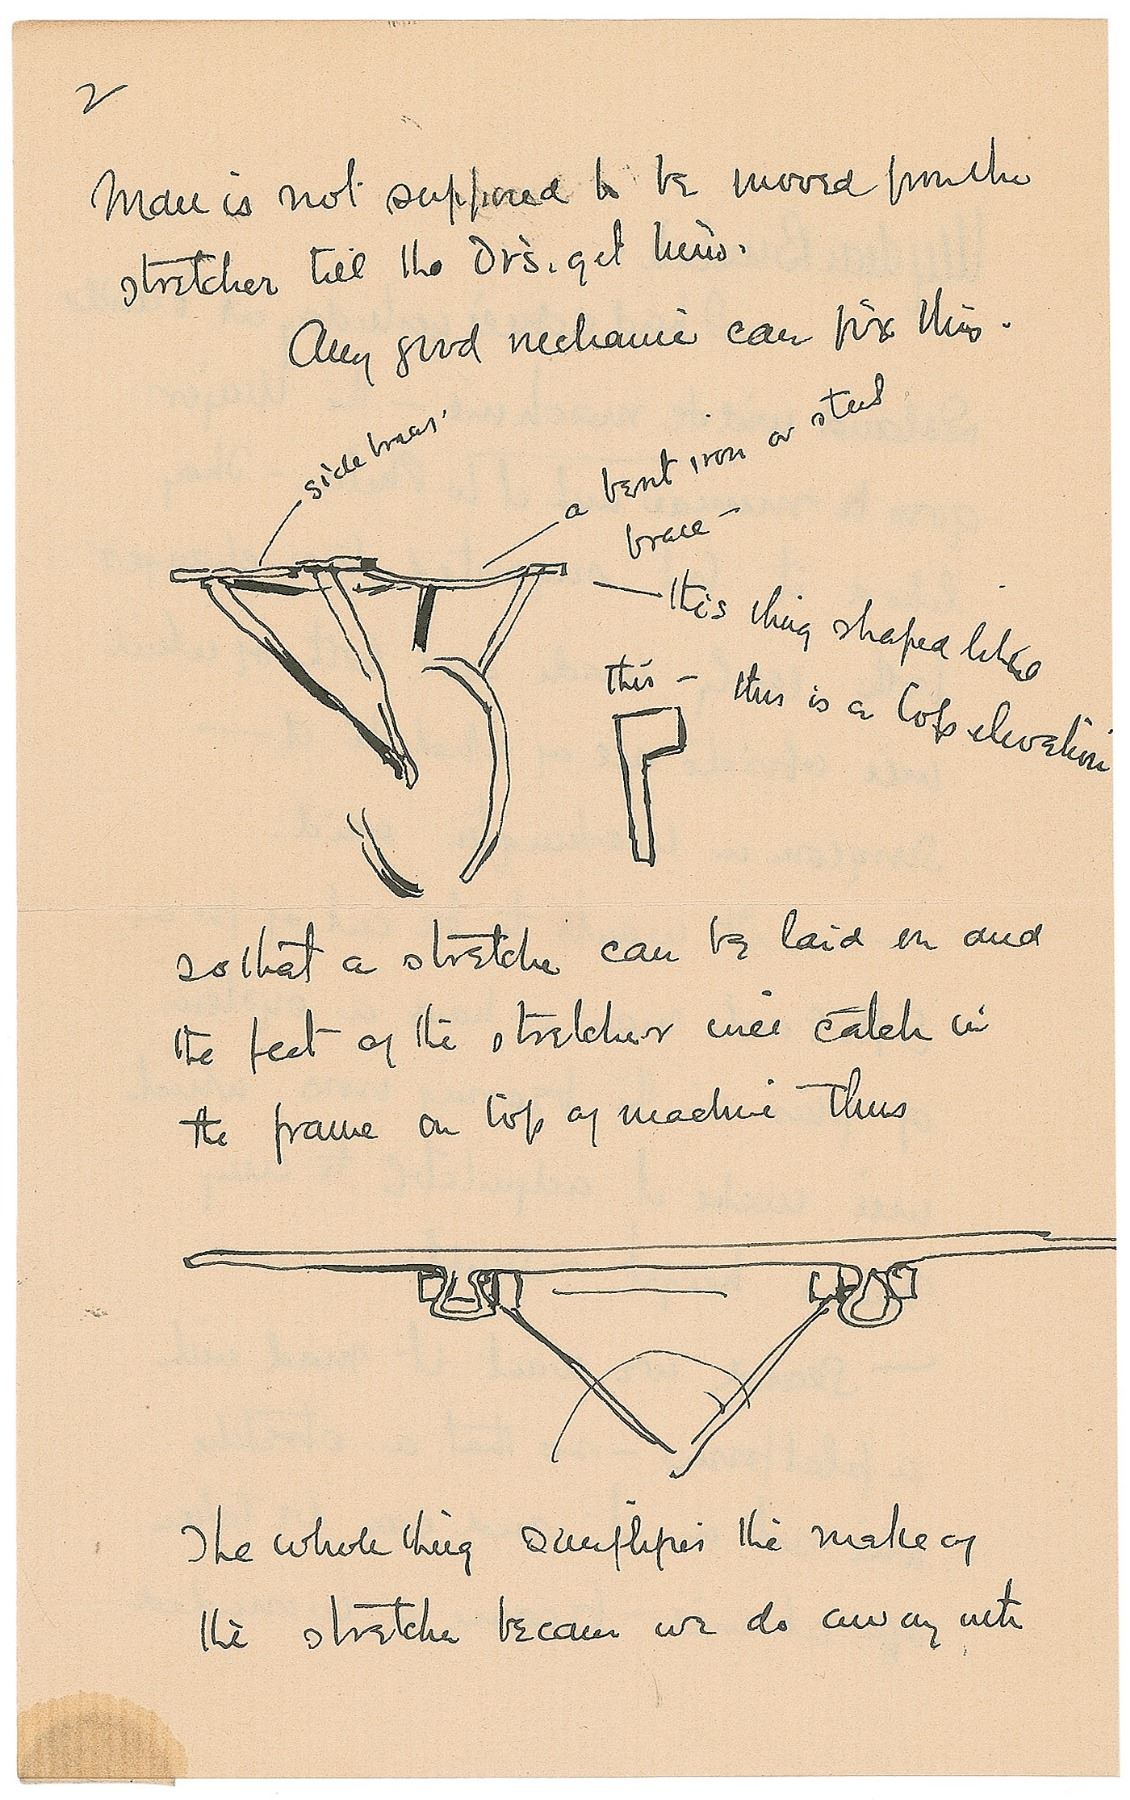 2
Man is not supposed to be moved from the
stretcher till the Drs. get him.
Any good mechanic can fix this.
side braces
a bent iron or steel
brace —
this thing shaped like
this — this is a top elevation
so that a stretcher can be laid on and
the feet of the stretcher will catch in
the frame on top of machine thus
The whole thing simplifies the make of
the stretcher because we do away with